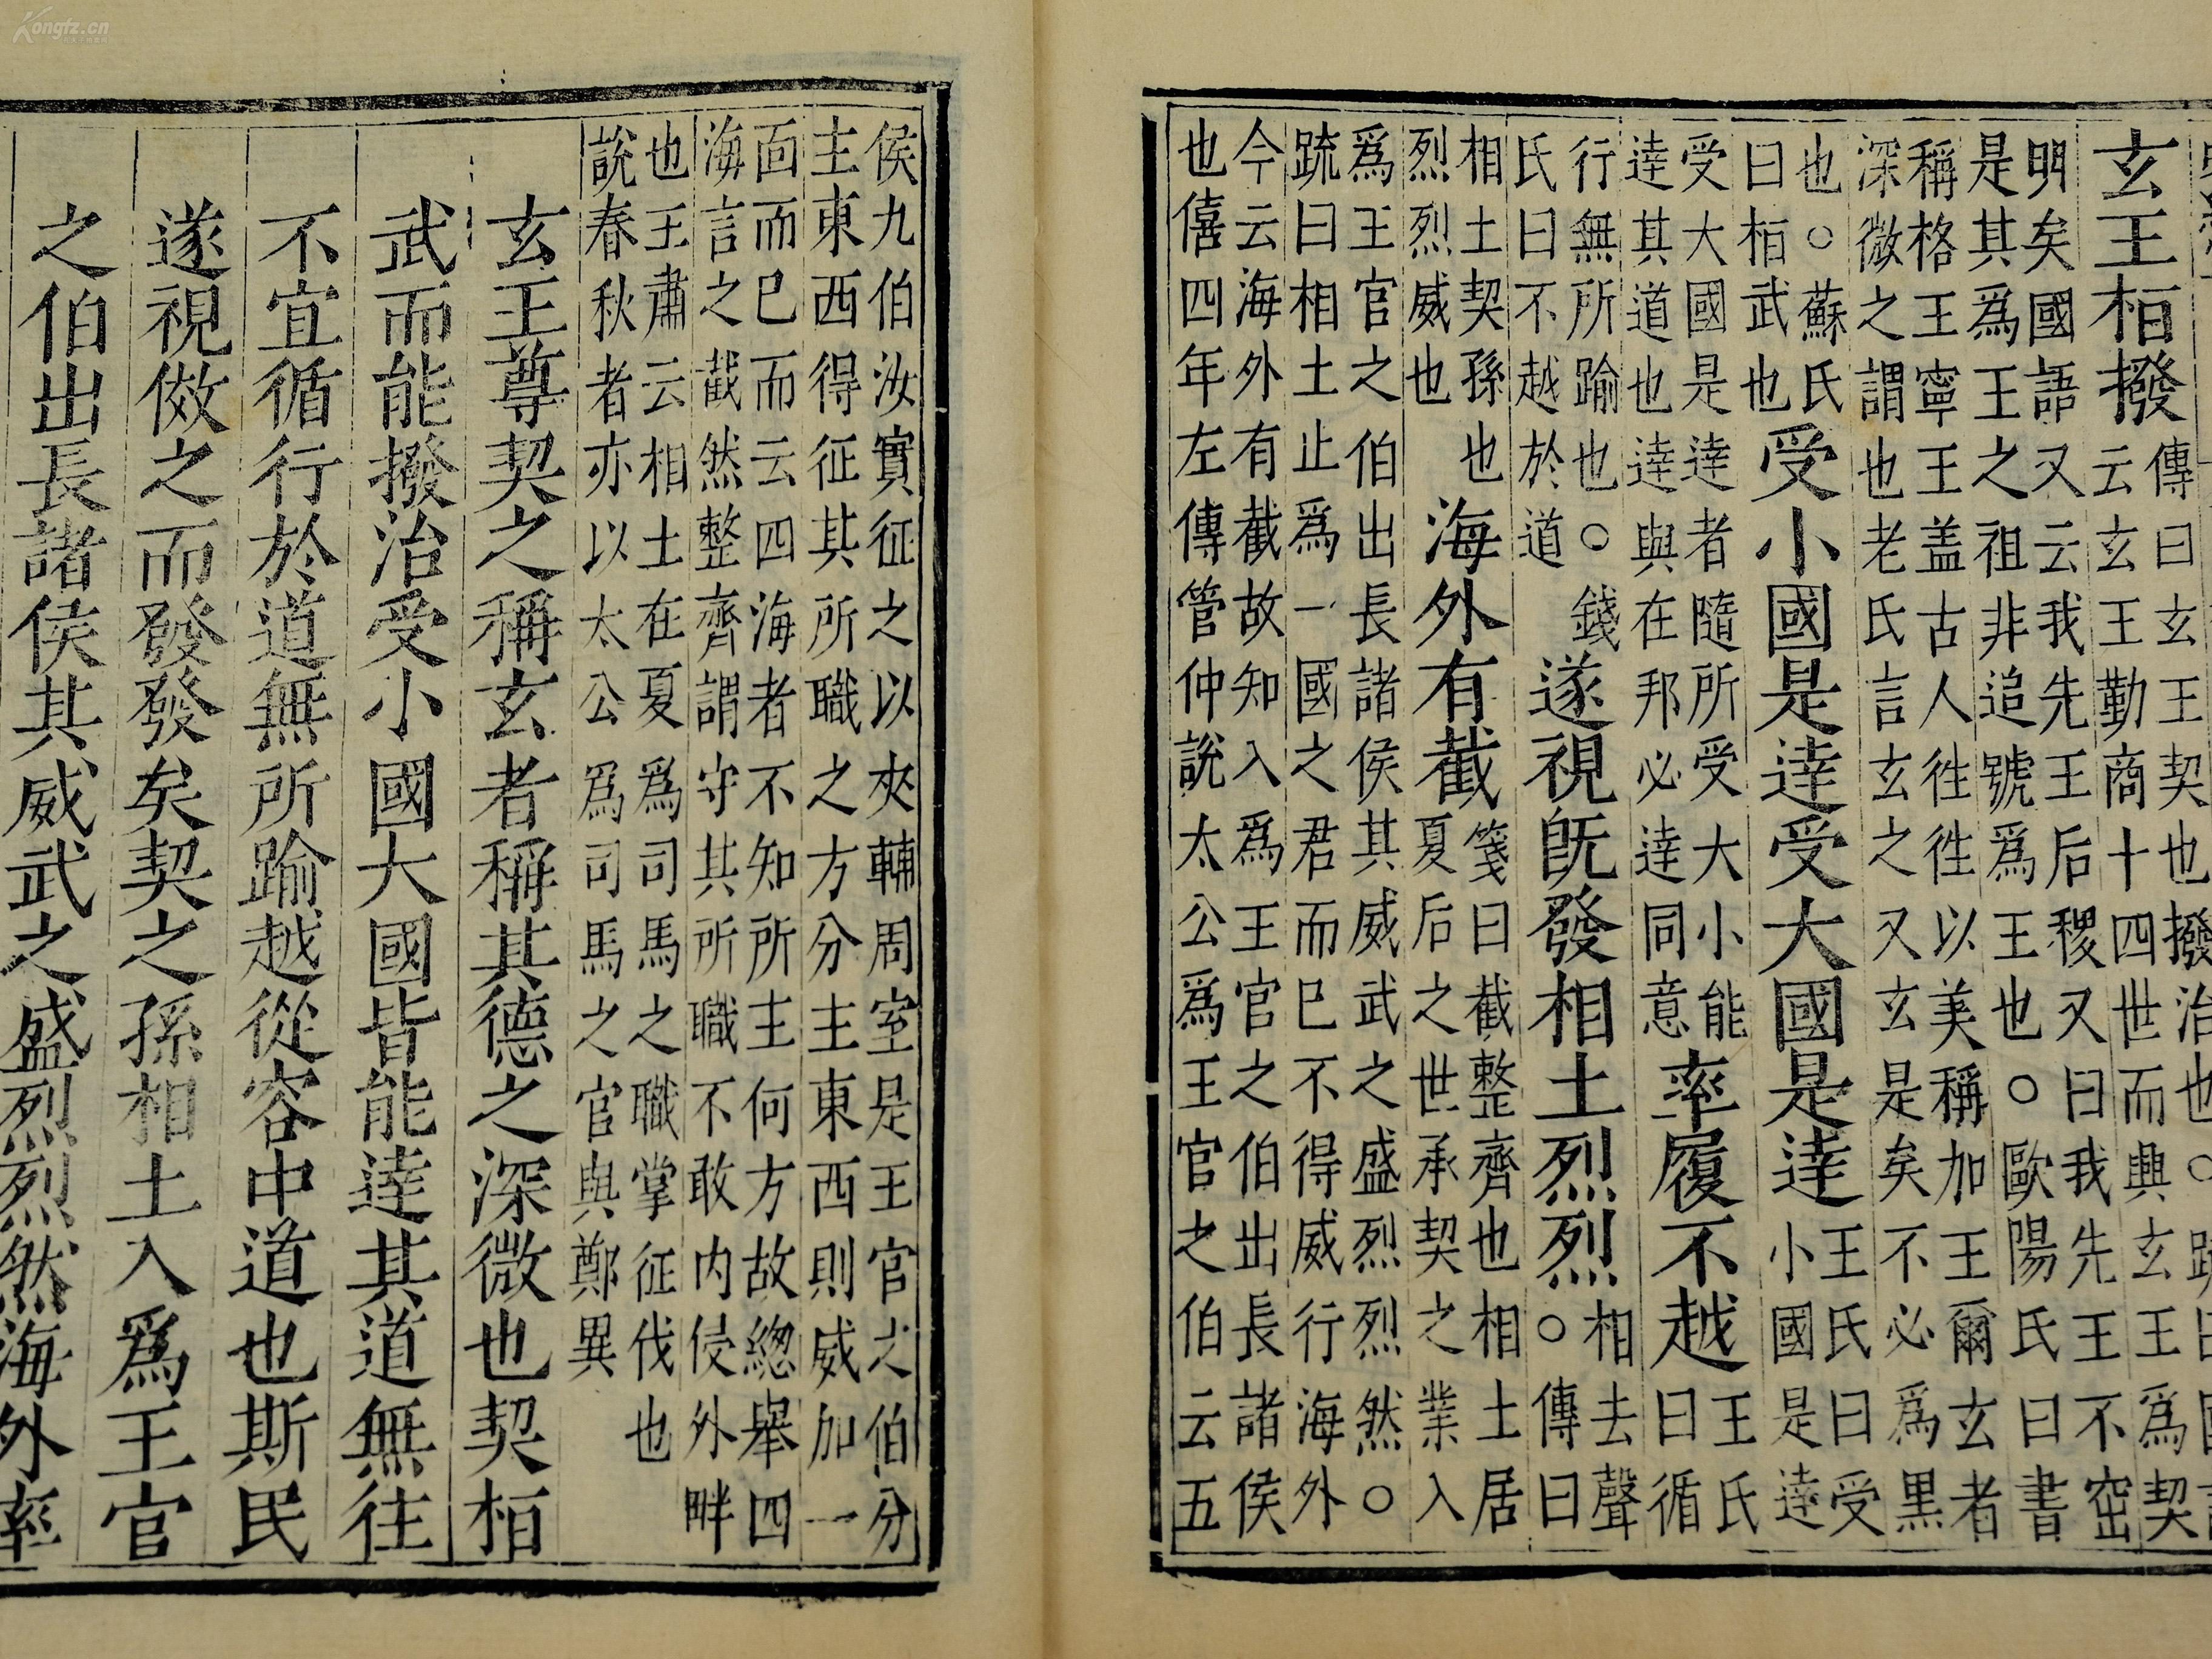 玄王桓撥
傳曰玄王契也撥治也○疏曰國語
云玄王勤商十四世而興玄王爲契
明矣國語又云我先王后稷又曰我先王不窋
是其爲王之祖非追號爲王也○歐陽氏曰書
稱格王寧王王盖古人徃徃以美稱加王爾玄者
深微之謂也老氏言玄之又玄是矣不必爲黒
也○蘇氏
曰桓武也
受小國是達受大國是達
王氏曰受
小國是達
受大國是達者隨所受大小能
達其道也達與在邦必達同意
率履不越
王氏
曰循
行無所踰也○錢
氏曰不越於道
遂視旣發相土烈烈○
相去聲
傳曰
相土契孫也
烈烈威也
海外有截
箋曰截整齊也相土居
夏后之世承契之業入
爲王官之伯出長諸侯其威武之盛烈烈然○
疏曰相土止爲一國之君而已不得威行海外
今云海外有截故知入爲王官之伯出長諸侯
也僖四年左傳管仲說太公爲王官之伯云五
侯九伯汝實征之以夾輔周室是王官之伯分
主東西得征其所職之方分主東西則威加一
面而已而云四海者不知所主何方故總舉四
海言之截然整齊謂守其所職不敢內侵外畔
也王肅云相土在夏爲司馬之職掌征伐也
說春秋者亦以太公爲司馬之官與鄭異
玄王尊契之稱玄者稱其德之深微也契桓
武而能撥治受小國大國皆能達其道無往
不宜循行於道無所踰越從容中道也斯民
遂視傚之而發發矣契之孫相土入爲王官
之伯出長諸侯其威武之盛烈烈然海外率